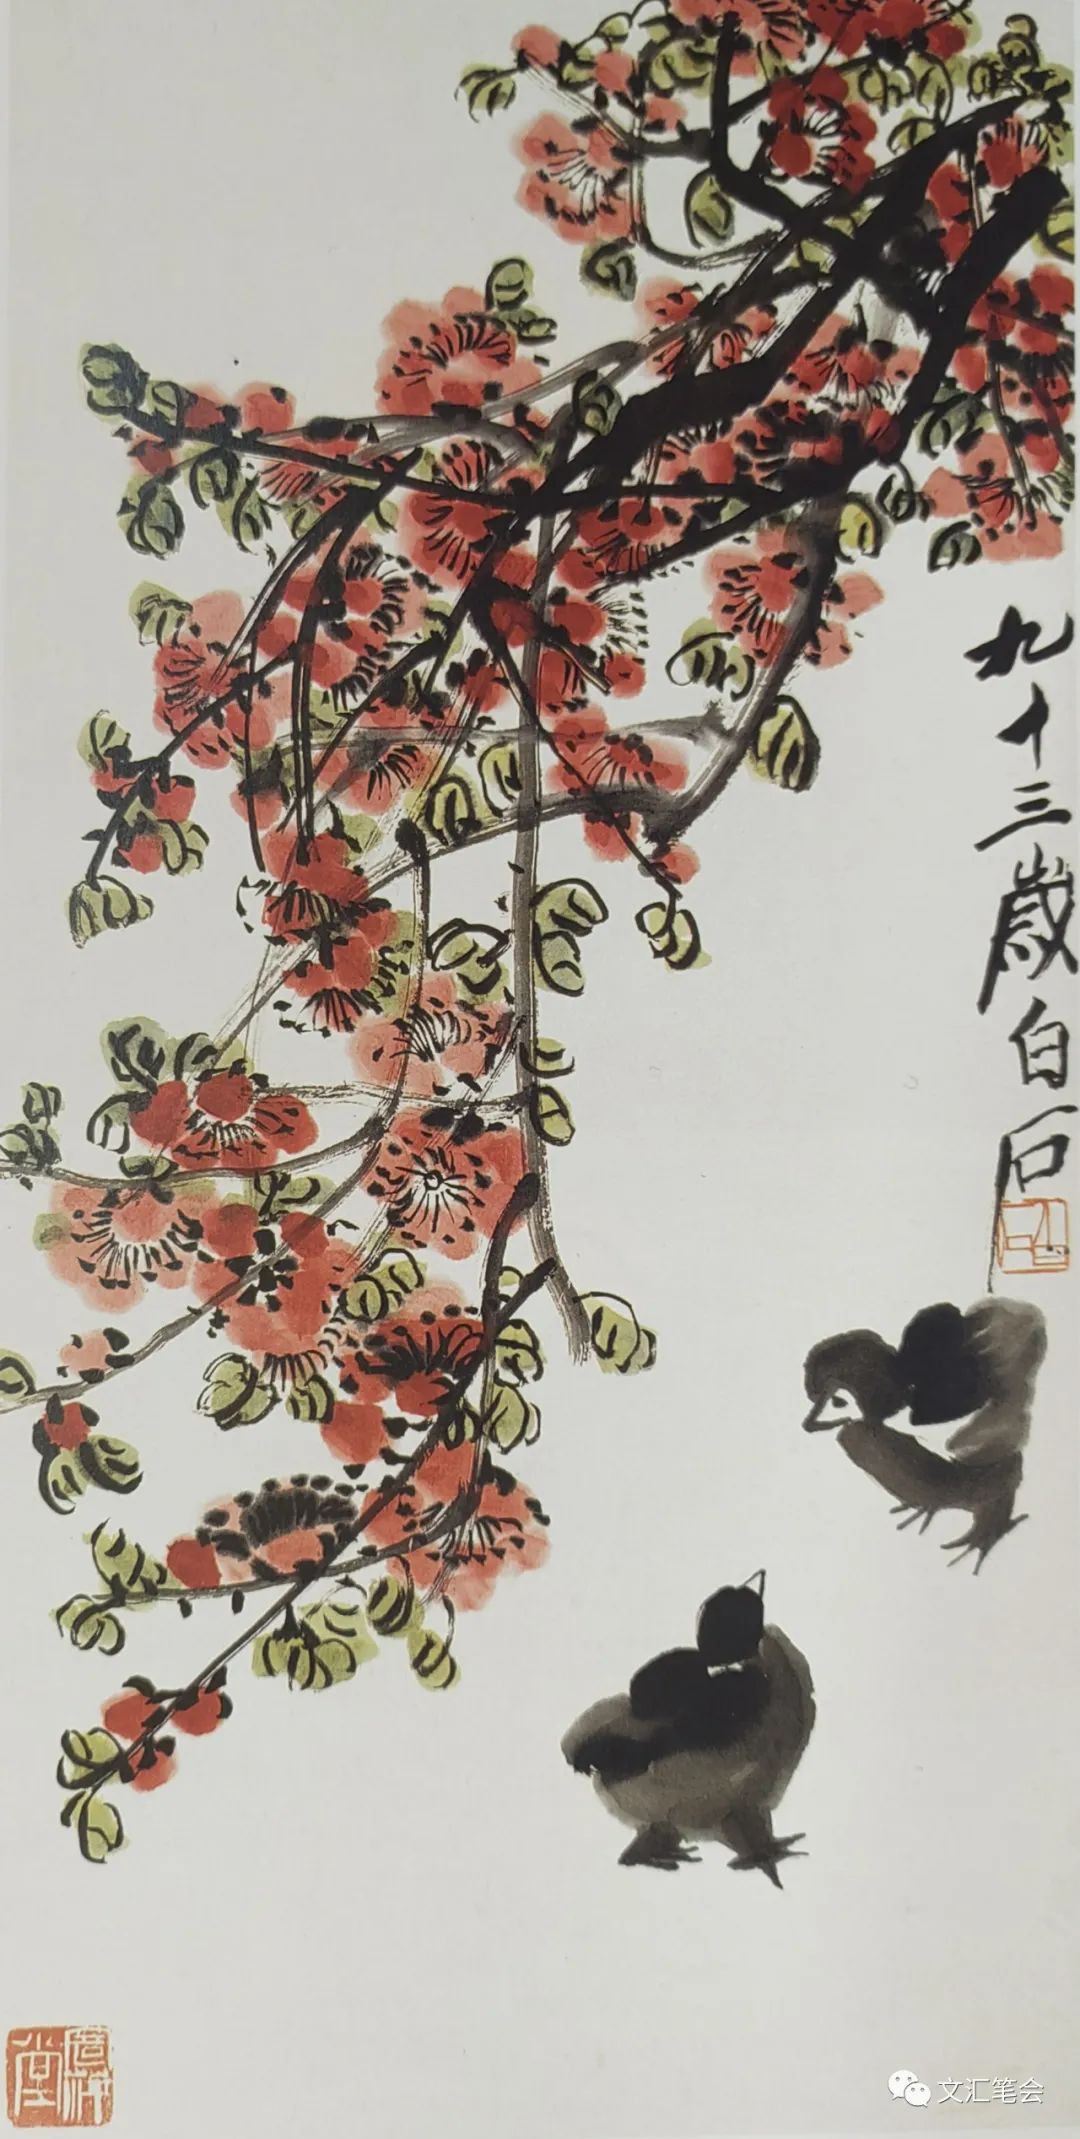 九十三歲白石
文汇笔会